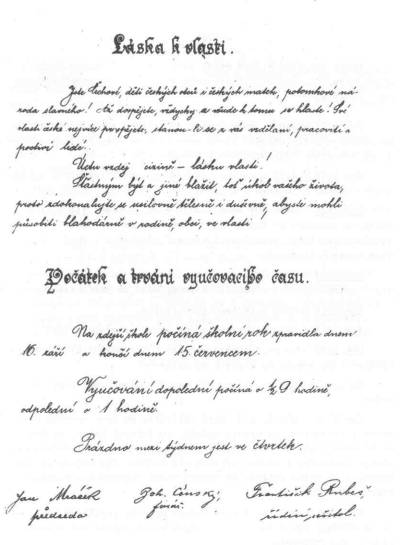 Láska k vlasti.
Jste Čechové, děti českých otců i českých matek, potomkové ná-
roda slavného! Až dospějete, vždycky a všude k tomu se hlaste! Své
vlasti české nejvíce prospějete, stanou-li se z vás vzdělaní, pracovití a
poctiví lidé.
Úctu vzdej cizině – lásku vlasti!
Šťastnym být a jiné blažit, toť úkol vašeho života,
proto zdokonalujte se usilovně tělesně i duševně, abyste mohli
působiti blahodárně v rodině, obci, ve vlasti
Počátek a trvání vyučovacího času.
Na zdejší škole počíná školní rok zpravidla dnem
16. září a končí dnem 15. červencem.
Vyučování dopolední počíná o ½ 9 hodině,
odpolední o 1 hodině.
Prázdno mezi týdnem jest ve čtvrtek.
Jan Mráček Joh. František Rubeš,
předseda farář. řídící učitel.